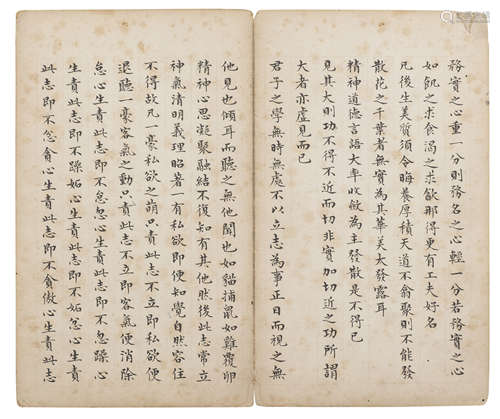 務實之心重一分則務名之心輕一分若務實之心
如飢之求食渴之求飲那得更有工夫好名
凡後生美質須令晦養厚積天道不翕聚則不能發
散花之千葉者無實為其華美太發露耳
精神道德言語大率收斂為主發散是不得已
見其大則功不得不近而切非實加切近之功所謂
大者亦虛見而已
君子之學無時無處不以立志為事正目而視之無
他見也傾耳而聽之無他聞也如貓捕鼠如雞覆卵
精神心思凝聚融結不復知有其他然後此志常立
神氣清明義理昭著一有私欲即便知覺自然容住
不得故凡一豪私欲之萌只責此志不立即私欲便
退聽一豪客氣之動只責此志不立即客氣便消除
怠心生責此志即不怠忽心生責此志即不忽躁心
生責此志即不躁妬心生責此志即不妬忿心生責
此志即不忿貪心生責此志即不貪傲心生責此志